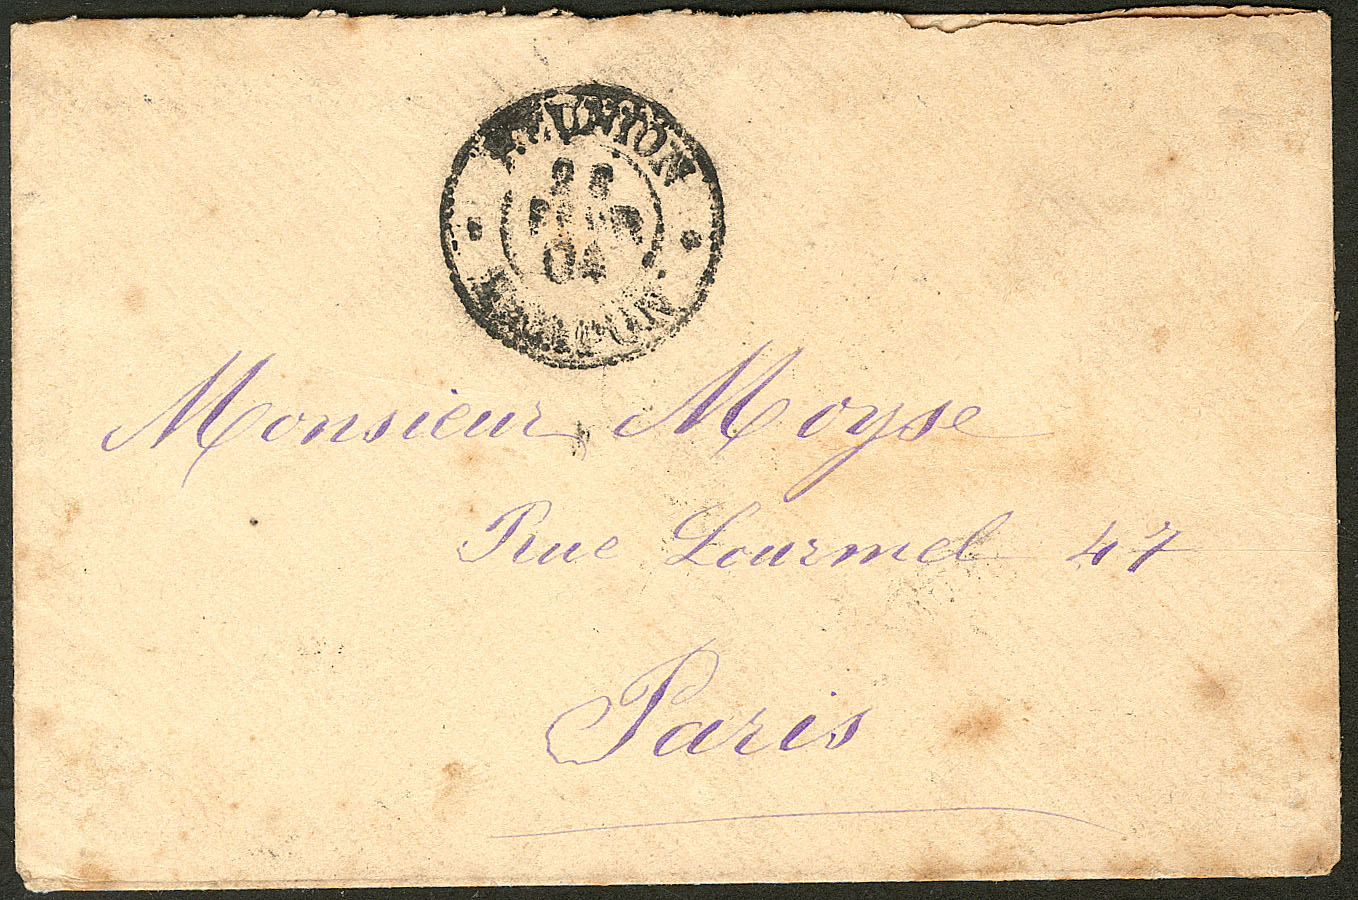 RÉUNION
04
Monsieur Moyse
Rue Lourmel 47
Paris